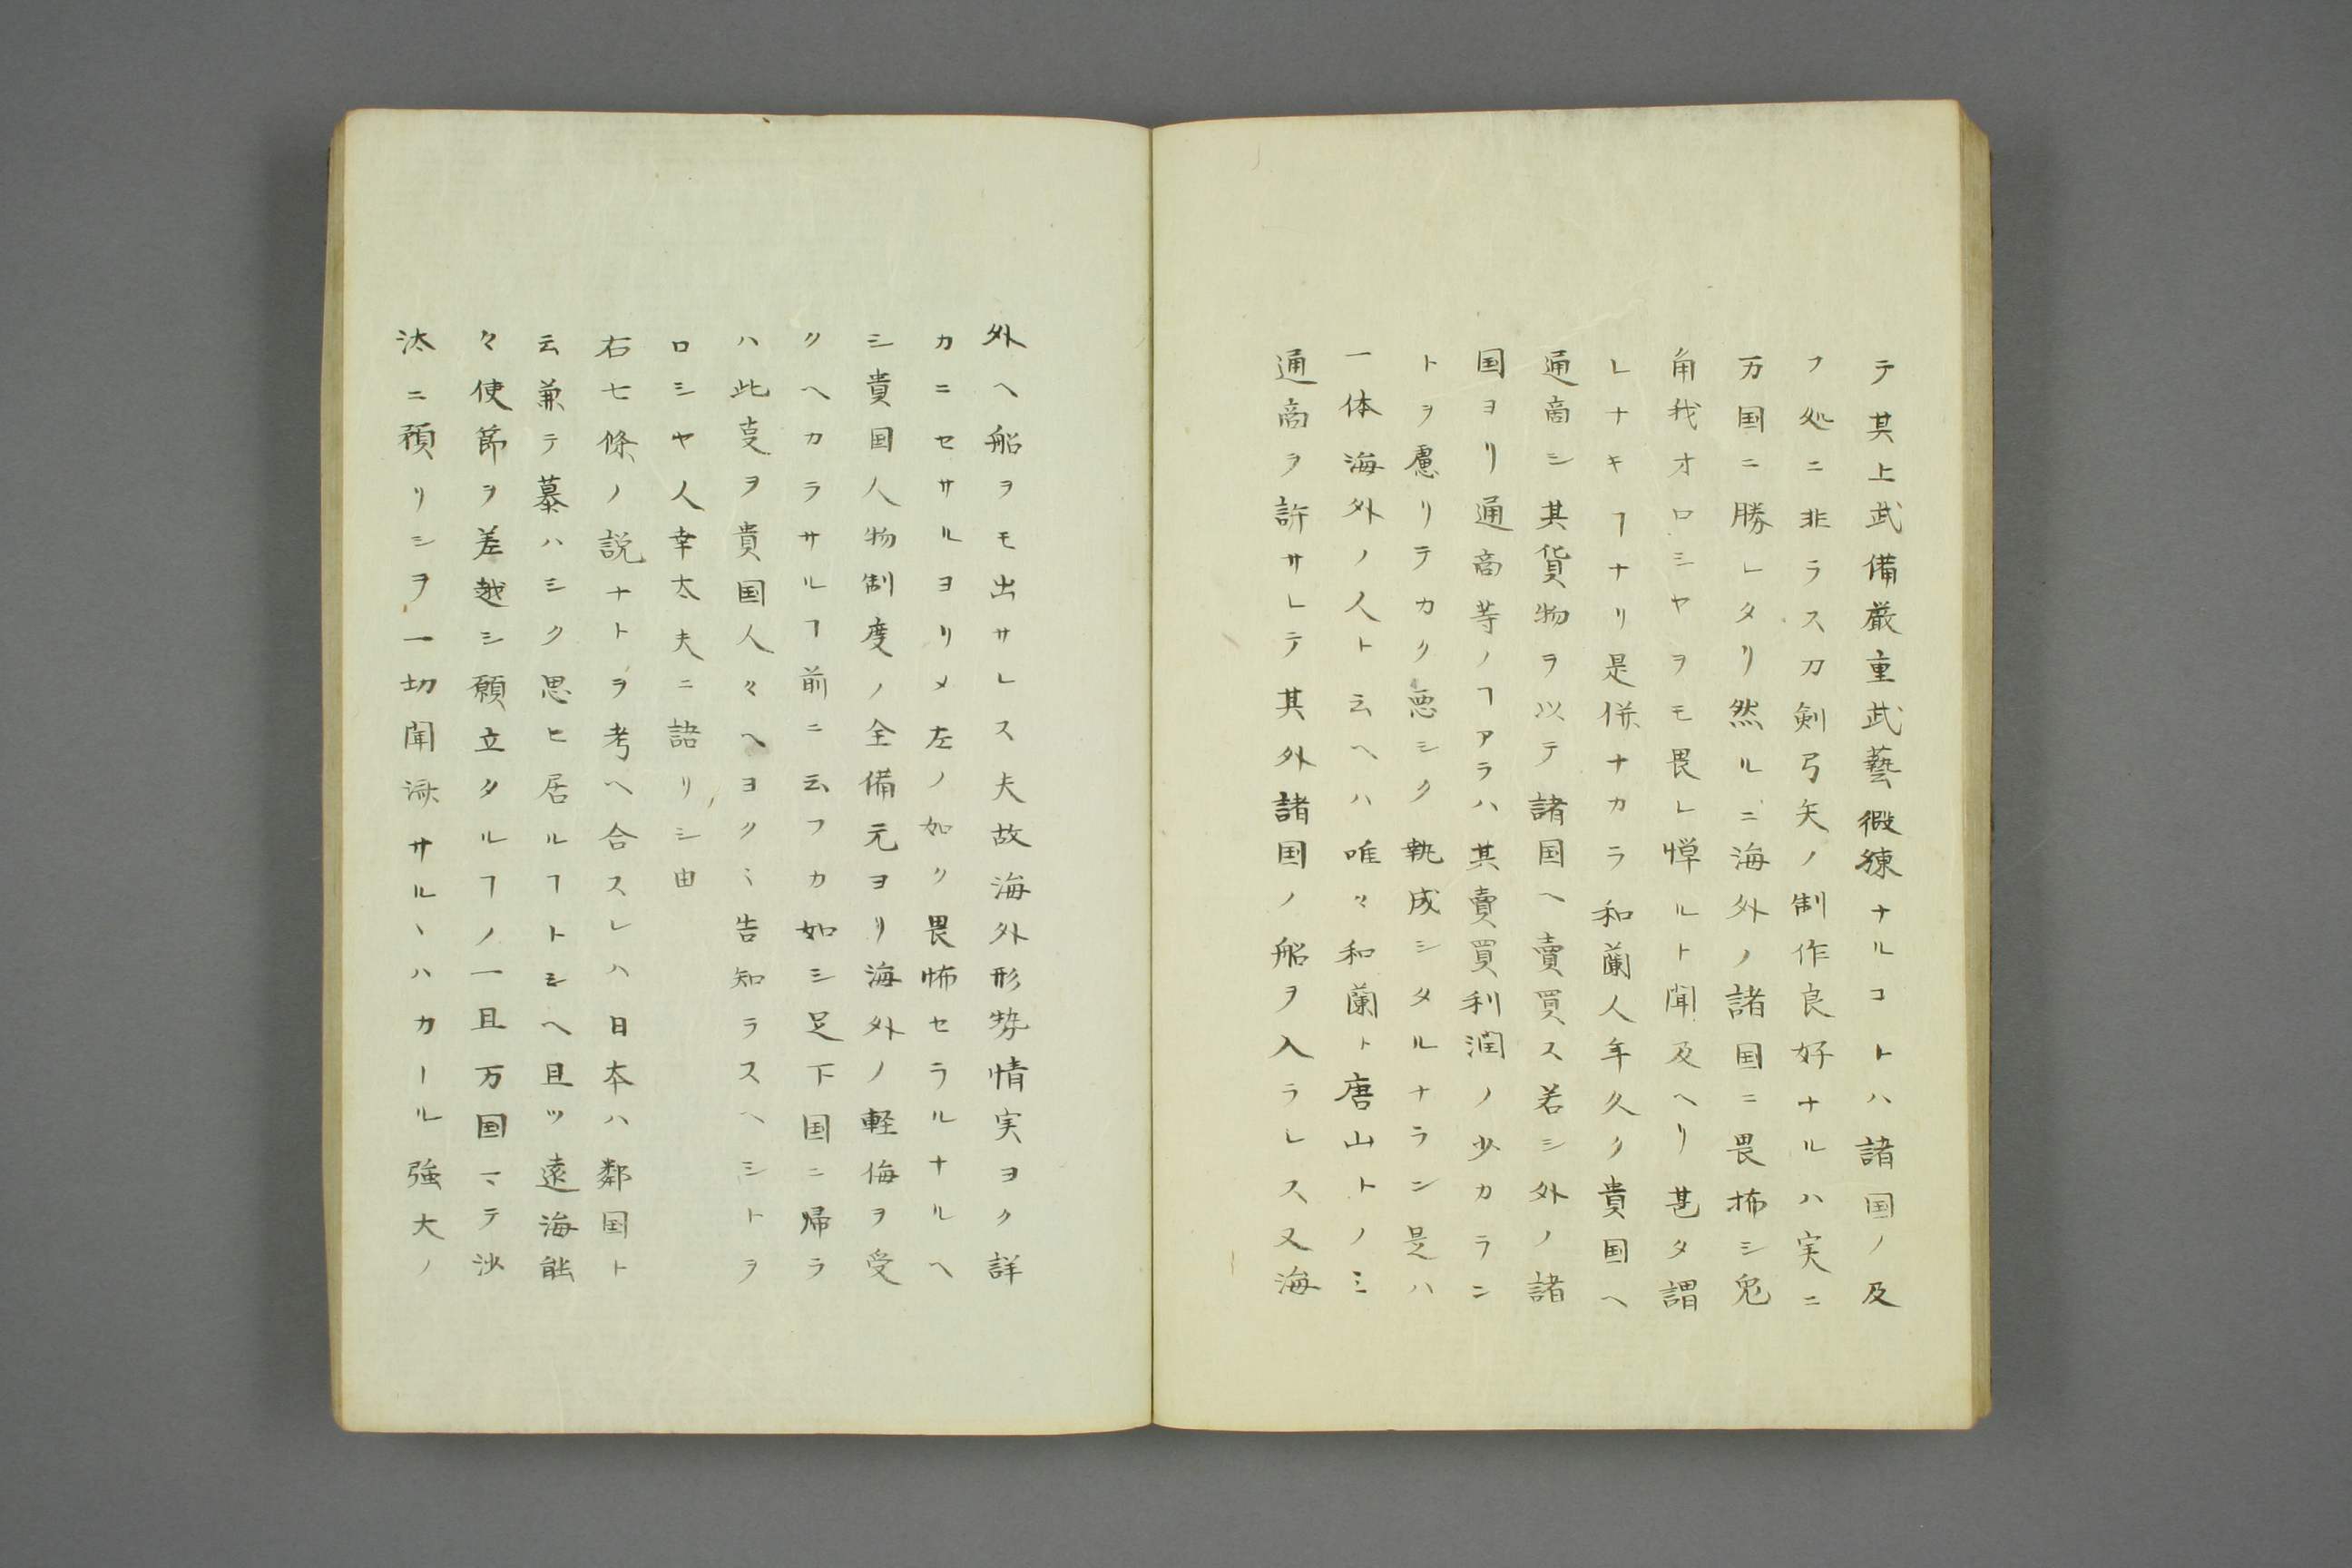 テ其上武備厳重武藝鍛練ナルコトハ諸国ノ及
フ処ニ非ラス刀剣弓矢ノ制作良好ナルハ実ニ
万国ニ勝レタリ然ルニ海外ノ諸国ニ畏怖シ兎
角我オロシヤヲモ畏レ憚ルト聞及ヘリ甚タ謂
レナキヿナリ是併ナカラ和蘭人年久ク貴国ヘ
通商シ其貨物ヲ以テ諸国ヘ賣買ス若シ外ノ諸
国ヨリ通商等ノヿアラハ其賣買利潤ノ少カラン
トヲ慮リテカク悪シク執成シタルナラン是ハ
一体海外ノ人ト云ヘハ唯々和蘭ト唐山トノミ
通商ヲ許サレテ其外諸国ノ船ヲ入ラレス又海
外ヘ船ヲモ出サレス夫故海外形勢情実ヨク詳
カニセサルヨリメ左ノ如ク畏怖セラルナルヘ
シ貴国人物制度ノ全備元ヨリ海外ノ軽侮ヲ受
クヘカラサルヿ前ニ云フカ如シ足下国ニ帰ラ
ハ此叓ヲ貴国人々ヘヨクミ告知ラスヘシトヲ
ロシヤ人幸太夫ニ語リシ由
右七條ノ説ナトヲ考ヘ合スレハ日本ハ鄰国ト
云兼テ慕ハシク思ヒ居ルヿトミヘ且ツ遠海態
々使節ヲ差越シ願立タルヿノ一旦万国マテ沙
汰ニ預リシヲ一切聞済サルヽハカール強大ノ